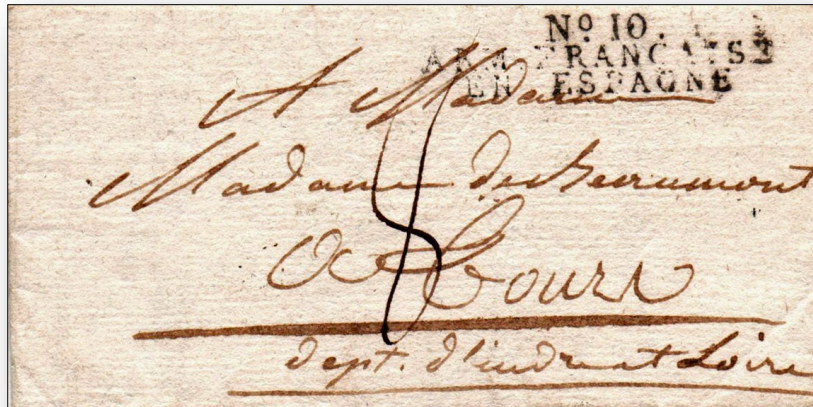 Nº 10.
ARM. FRANÇAISE
EN ESPAGNE
A Madame
Madame de Beaumont
A Tours
8
dept. d'indre et Loire